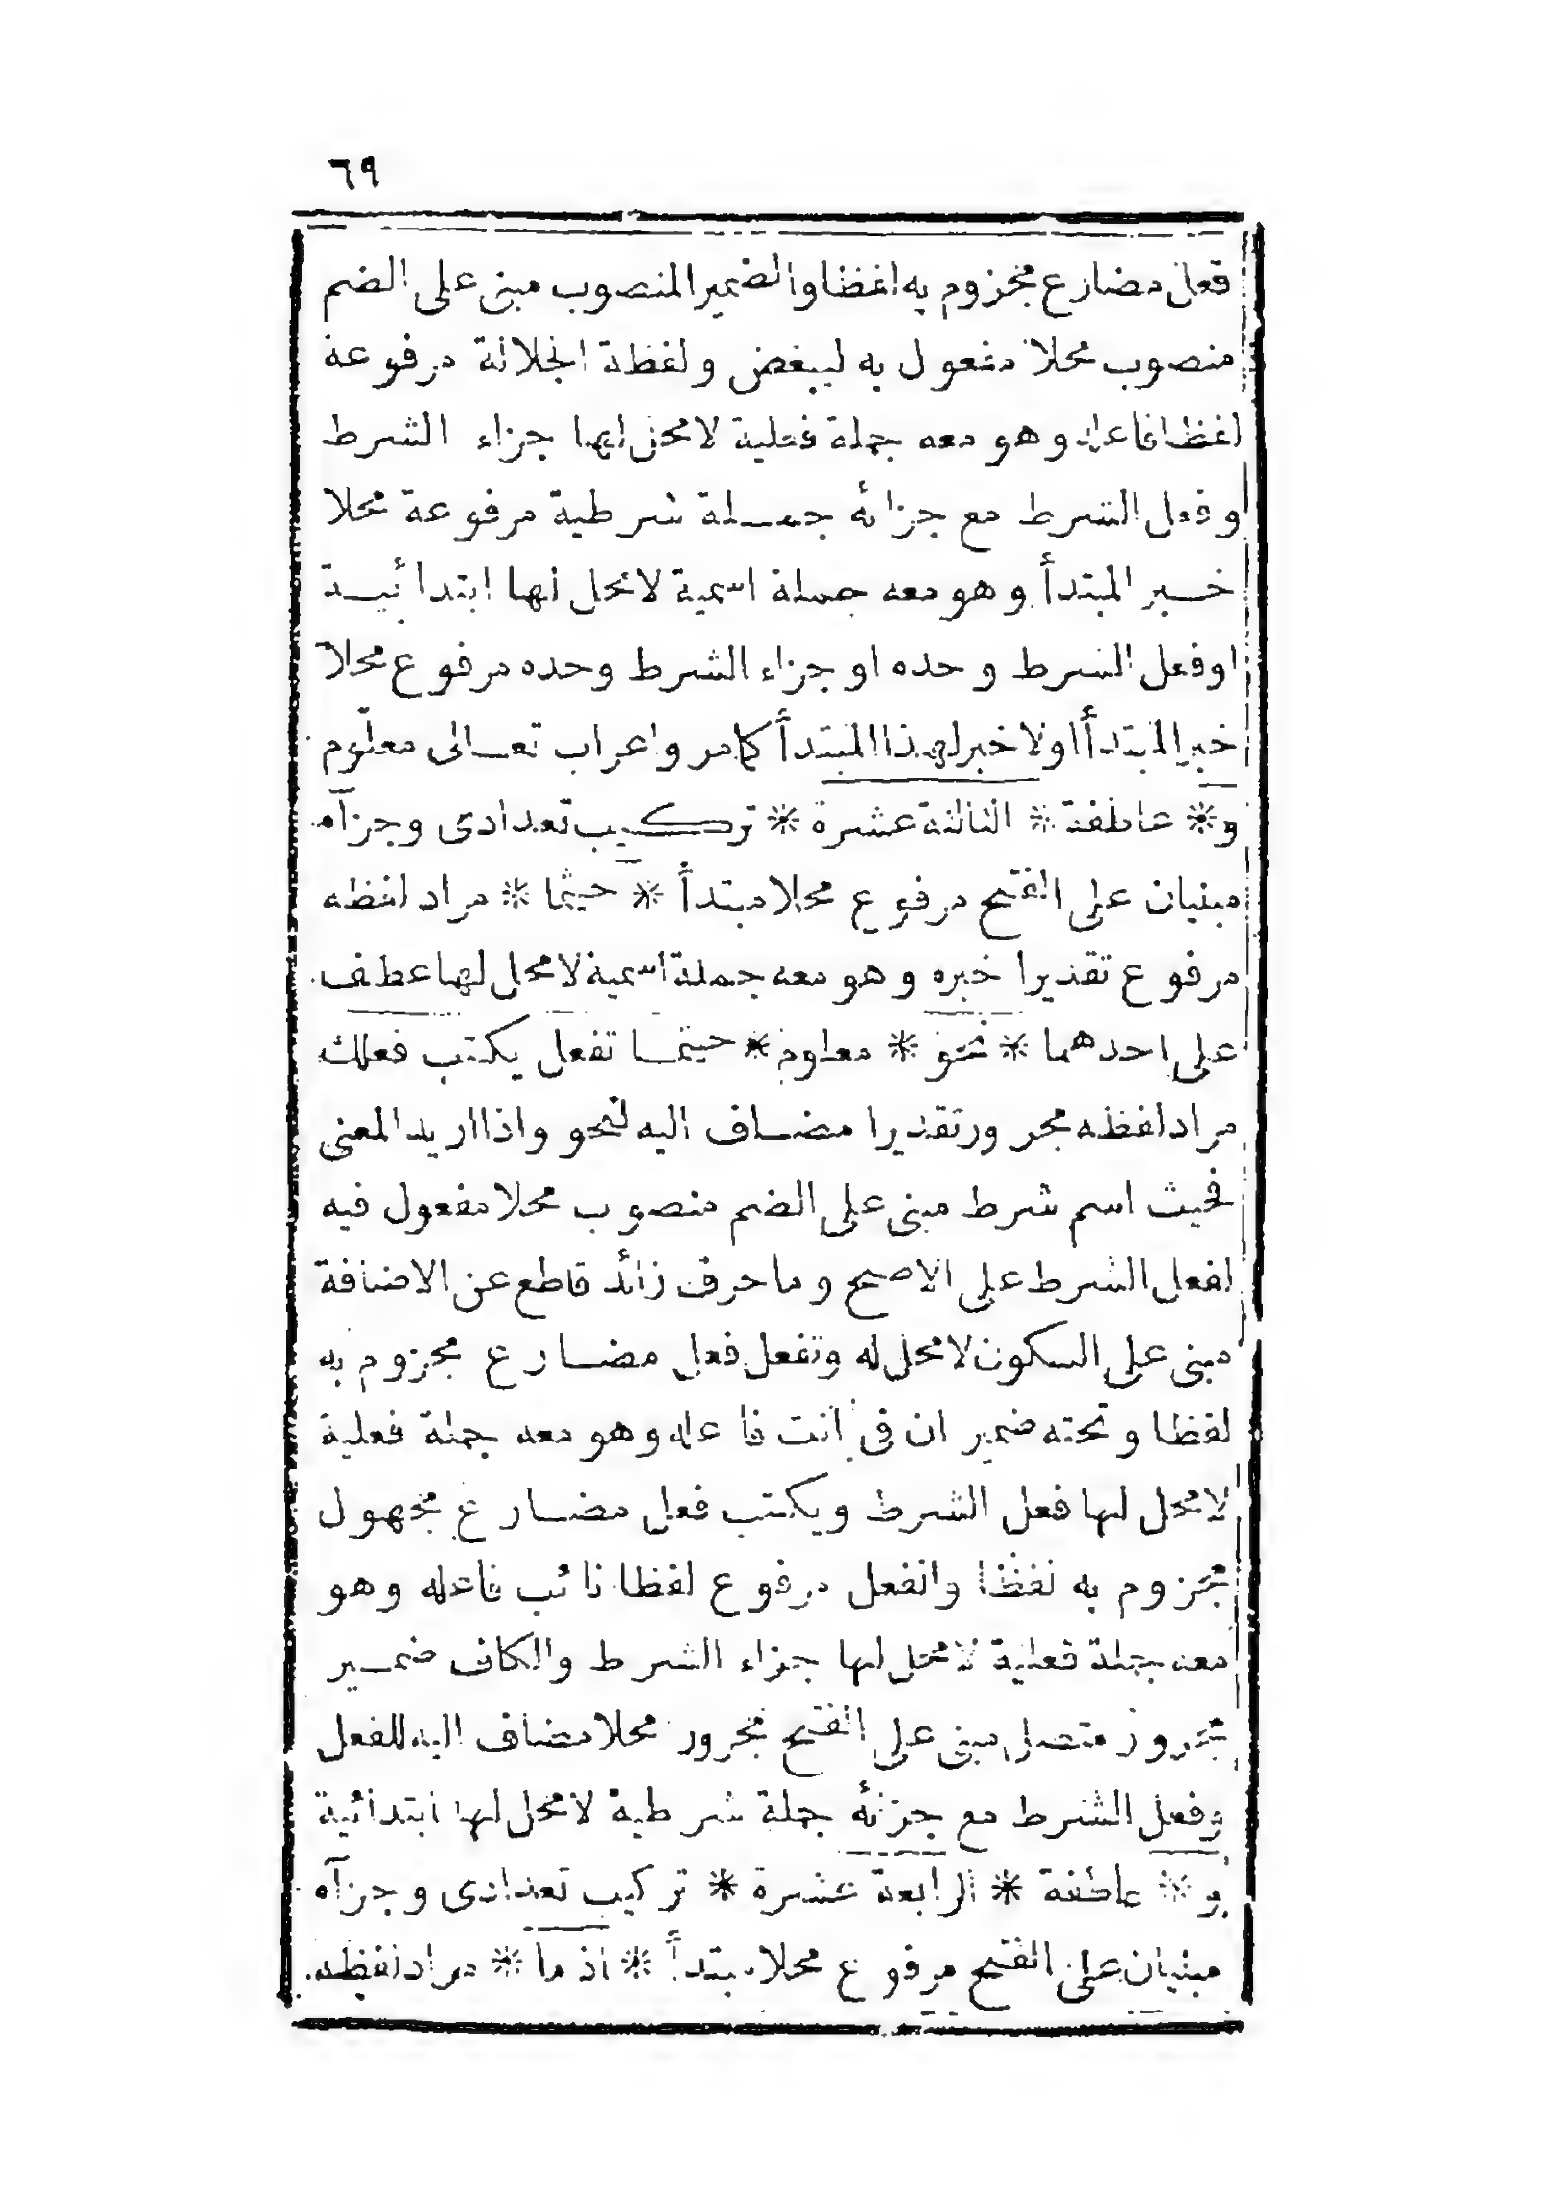 ٦٩
فعل مضارع مجزوم به لفظا والضمير المنصوب مبنى على الضم
منصوب محلا مفعول به ليبغض ولفظة الجلالة مرفوعة
لفظا فاعله وهو معه جملة فعلية لا محل لها جزاء الشرط
وفعل الشرط مع جزائه جمـلة شرطية مرفوعة محلا
خـبر المبتدأ وهو معه جملة اسمية لا محل لها ابتدائيـة
او فعل الشرط وحده او جزاء الشرط وحده مرفوع محلا
خبر المبتدأ او لا خبر لهذا المبتدأ كما مر واعراب تعـالى معلوم
و * عاطفة * الثالثة عشرة * تركيب تعدادى وجزآه
مبنيان على الفتح مرفوع محلا مبتدأ * حيثما * مراد لفظه
مرفوع تقديرا خبره وهو معه جملة اسمية لا محل لها عطف
على احدهما * نحو * معلوم * حيثمـا تفعل يكتب فعلك
مراد لفظه مجرور تقديرا مضـاف اليه لنحو واذا اريد المعنى
فحيث اسم شرط مبنى على الضم منصوب محلا مفعول فيه
لفعل الشرط على الاصح وما حرف زائد قاطع عن الاضافة
مبنى على السكون لا محل له وتفعل فعل مضـارع مجزوم به
لفظا وتحته ضمير ان فى أنت فاعله وهو معه جملة فعلية
لا محل لها فعل الشرط ويكتب فعل مضـارع مجهول
مجزوم به لفظا والفعل مرفوع لفظا نائب فاعله وهو
معه جملة فعلية لا محل لها جزاء الشرط والكاف ضمـير
مجرور متصل مبنى على الفتح مجرور محلا مضاف اليه للفعل
وفعل الشرط مع جزئه جملة شرطية لا محل لها ابتدائية
و * عاطفة * الرابعة عشرة * تركيب تعدادى وجزآه
مبنيان على الفتح مرفوع محلا مبتدأ * اذ ما * مراد لفظه